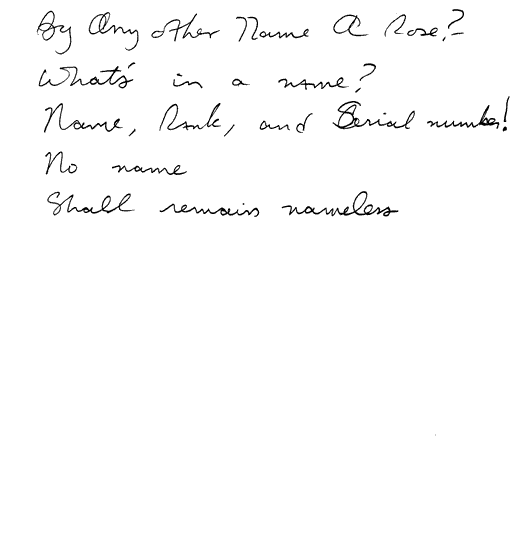 By Any other Name A Rose?
What's in a name?
Name, Rank, and Serial number!
No name
Shall remain nameless